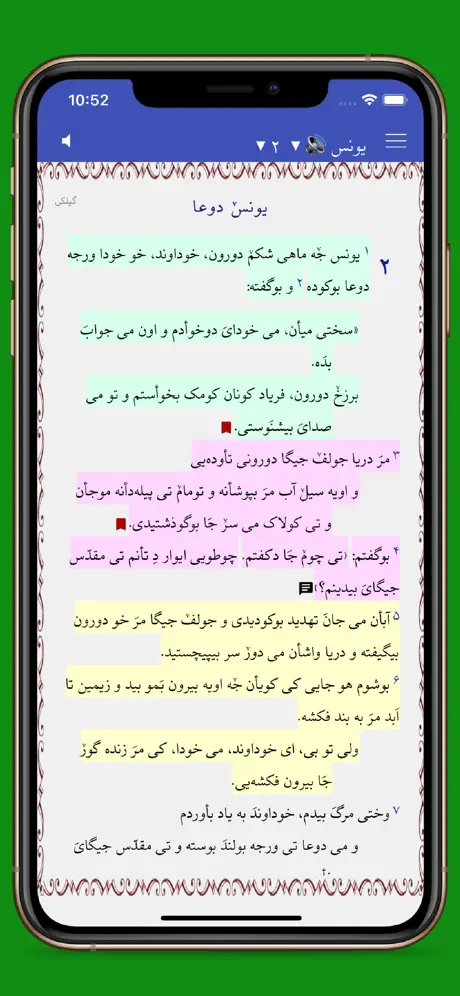 10:52
یونس ▼ ۲ ▼
گیلکی
یونسˇ دوعا
۲
۱ یونس جٚه ماهی شکمˇ دورون، خوداوند، خو خودا ورجه
دوعا بوکوده ۲ و بوگفته:
«سختی میأن، می خودایَ دوخوأدم و اون می جوابَ
بدَه.
برزخˇ دورون، فریاد کونان کومک بخوأستم و تو می
صدایَ بیشنَوستی.
۳ مرَ دریا جولفˇ جیگا دورونی تأوده‌یی
و اویه سیلˇ آب مرَ بپوشأنه و تومامˇ تی پیله‌دأنه موجأن
و تی کولاک می سرˇ جَا بوگوذشتیدی.
۴ بوگفتم: ‹تی چومˇ جَا دکفتم. چوطویی ایوار دِ تأنم تی مقدّس
جیگایَ بیدینم؟›
۵ آبأن می جانَ تهدید بوکودیدی و جولفˇ جیگا مرَ خو دورون
بیگیفته و دریا واشأن می دورˇ سر بیپیچستید.
۶ بوشوم هو جایی کی کویأن جٚه اویه بیرون بَمو بید و زیمین تا
اَبد مرَ به بند فکشه.
ولی تو بی، ای خوداوند، می خودا، کی مرَ زنده گورˇ
جَا بیرون فکشه‌یی.
۷ وختی مرگَ بیدم، خوداوندَ به یاد بأوردم
و می دوعا تی ورجه بولندَ بوسته و تی مقدّس جیگایَ